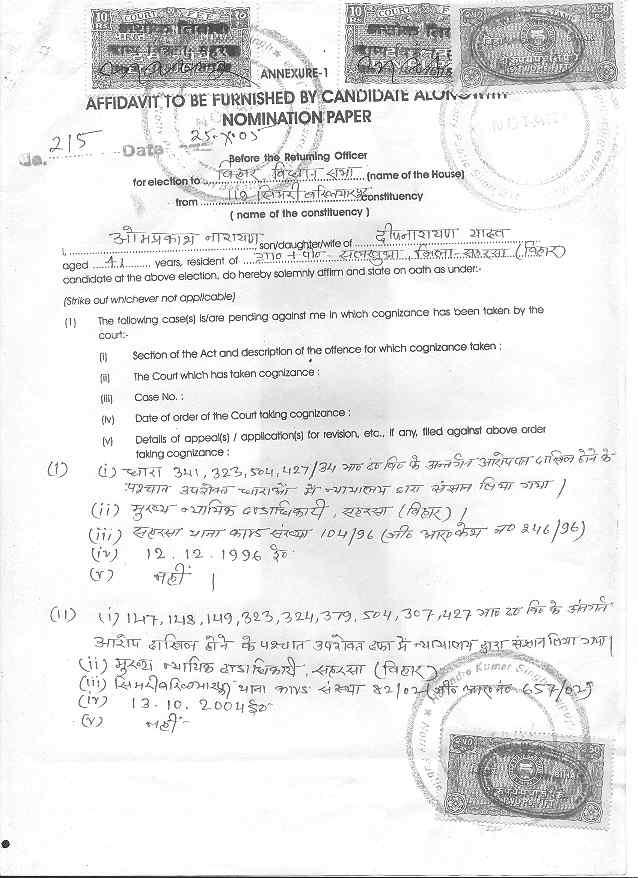 10 Rs. COURT FEE १०
10 Rs. COURT FEE
ANNEXURE-1
AFFIDAVIT TO BE FURNISHED BY CANDIDATE ALONGWITH
NOMINATION PAPER
No. 215 Date 25.X.05
Before the Returning Officer
for election to बिहार विधान सभा (name of the House)
from 110 सिमरी बख्तियारपुर constituency
( name of the constituency )
I, ओमप्रकाश नारायण son/daughter/wife of दीपनारायण यादव
aged 41 years, resident of ग्रा०+पो०- सलखुआ, जिला-सहरसा (बिहार)
candidate at the above election, do hereby solemnly affirm and state on oath as under:-
(Strike out whichever not applicable)
(1) The following case(s) is/are pending against me in which cognizance has been taken by the
court:-
(i) Section of the Act and description of the offence for which cognizance taken :
(ii) The Court which has taken cognizance :
(iii) Case No. :
(iv) Date of order of the Court taking cognizance :
(v) Details of appeal(s) / application(s) for revision, etc., if any, filed against above order
taking cognizance :
(1) (i) धारा 341, 323, 504, 427/34 भा० द० वि० के अन्तर्गत आरोप पत्र दाखिल होने के
पश्चात उपरोक्त धाराओं में न्यायालय द्वारा संज्ञान लिया गया |
(ii) मुख्य न्यायिक दण्डाधिकारी, सहरसा (बिहार) |
(iii) सहरसा थाना काण्ड संख्या 104/96 (जी० आर० केश न० 246/96)
(iv) 12.12.1996 ई०
(v) नहीं |
(11) (i) 147, 148, 149, 323, 324, 379, 504, 307, 427 भा० द० वि० के अंतर्गत
आरोप दाखिल होने के पश्चात उपरोक्त दफा में न्यायालय द्वारा संज्ञान लिया गया |
(ii) मुख्य न्यायिक दण्डाधिकारी, सहरसा (बिहार)
(iii) सिमरी बख्तियारपुर थाना काण्ड संख्या 82/02 (जी० आर० नं० 657/02)
(iv) 13.10.2004 ई०
(v) नहीं